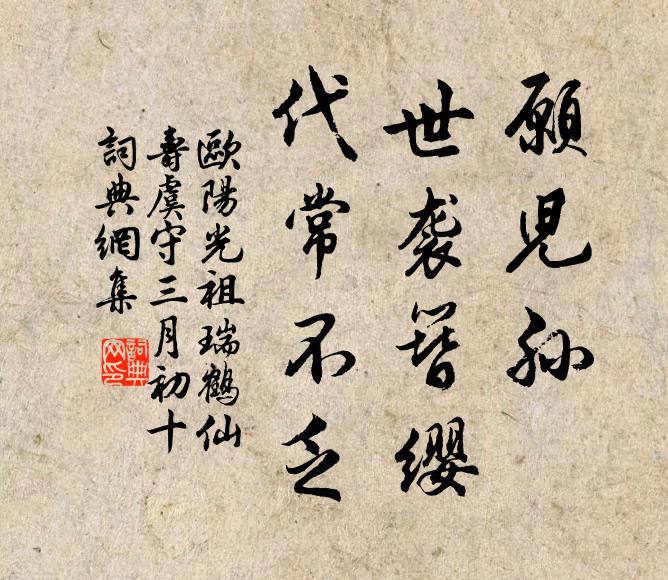 願兒孫
世袭簪纓
代常不乏
歐陽光祖瑞鶴仙
壽虞守三月初十
詞典網集
詞典
网印